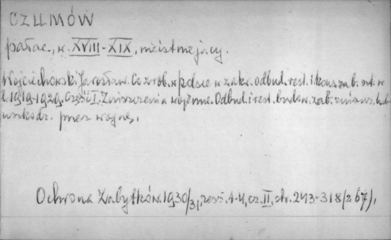 CZUMÓW
pałac, w. XVIII-XIX, nieistniejący.
Wojciechowski Jarosław. Co zrob. w Polsce w zakr. odbud. rest. i konserw. b. mt. w
l. 1919-1929. Część I. Zniszczenia wojenne. Odbud. i rest. budow. zab. zniszcz. lub
uszkodz. przez wojnę,
Ochrona Zabytków. 1930/31, zesz. 1-4, cz. II, str. 243-318/267/,